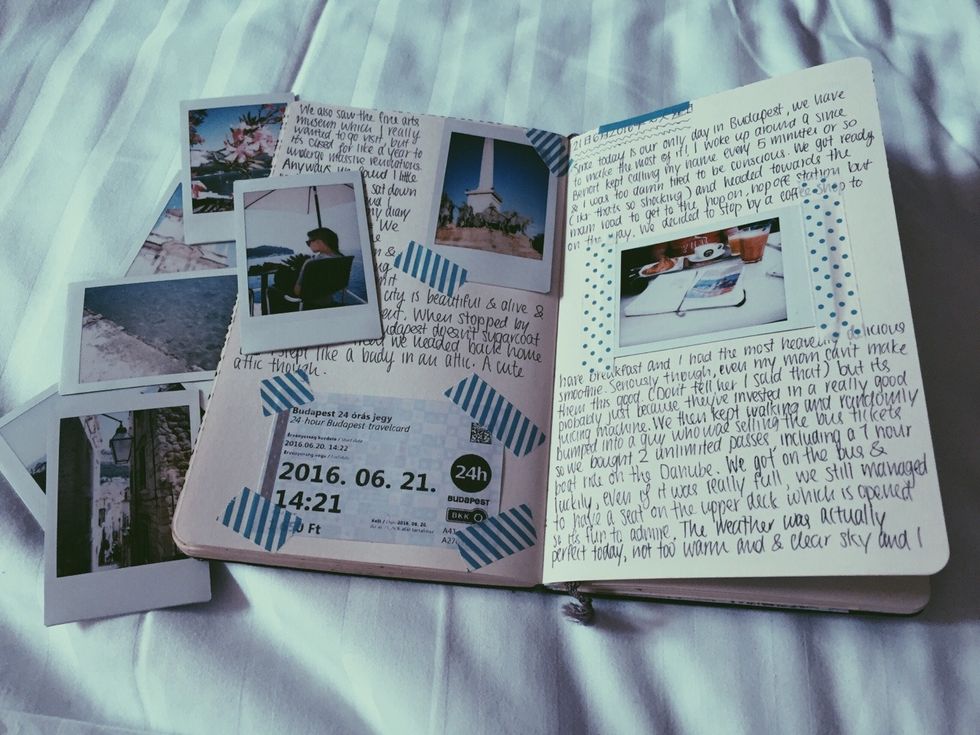 We also saw the fine arts
museum which I really
wanted to go visit, but
its closed for like a year to
undergo massive renovations.
Anyways, we found 1 little
sat down
my diary
We
&
city is beautiful & alive &
out. When stopped by
Budapest doesn't sugarcoat
we headed back home
slept like a baby in an attic. A cute
attic though.
Budapest 24 órás jegy
24-hour Budapest travelcard
Érvényesség kezdete / Start date
2016.06.20. 14:22
Érvényesség vége /
2016. 06. 21.
14:21
Ft
24h
BUDAPEST
BKK
Since today is our only day in Budapest, we have
to make the most of it! I woke up around 9 since
kept calling my name every 5 minutes or so
& I was too damn tired to be conscious. We got ready
(like thats so shocking) and headed towards the
main road to get to the hop on, hop off station but
on the way, we decided to stop by a coffee shop to
have breakfast and I had the most heavenly delicious
smoothie. Seriously though, even my mom can't make
them this good (Don't tell her I said that) but its
probably just because they've invested in a really good
juicing machine. We then kept walking and randomly
bumped into a guy who was selling the bus tickets
so we bought 2 unlimited passes, including a 1 hour
boat ride on the Danube. We got on the bus &
luckily, even if it was really full, we still managed
to have a seat on the upper deck which is opened
so its fun to admire. The weather was actually
perfect today, not too warm and a clear sky and I